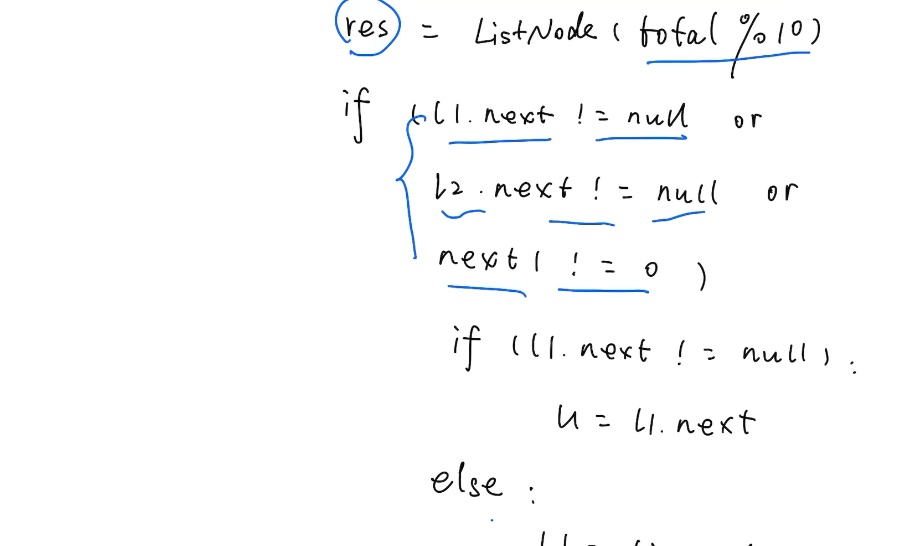 res = ListNode ( total % 10 )
if ( l1.next != null or
l2.next != null or
next1 != 0 )
if (l1.next != null) :
l1 = l1.next
else :